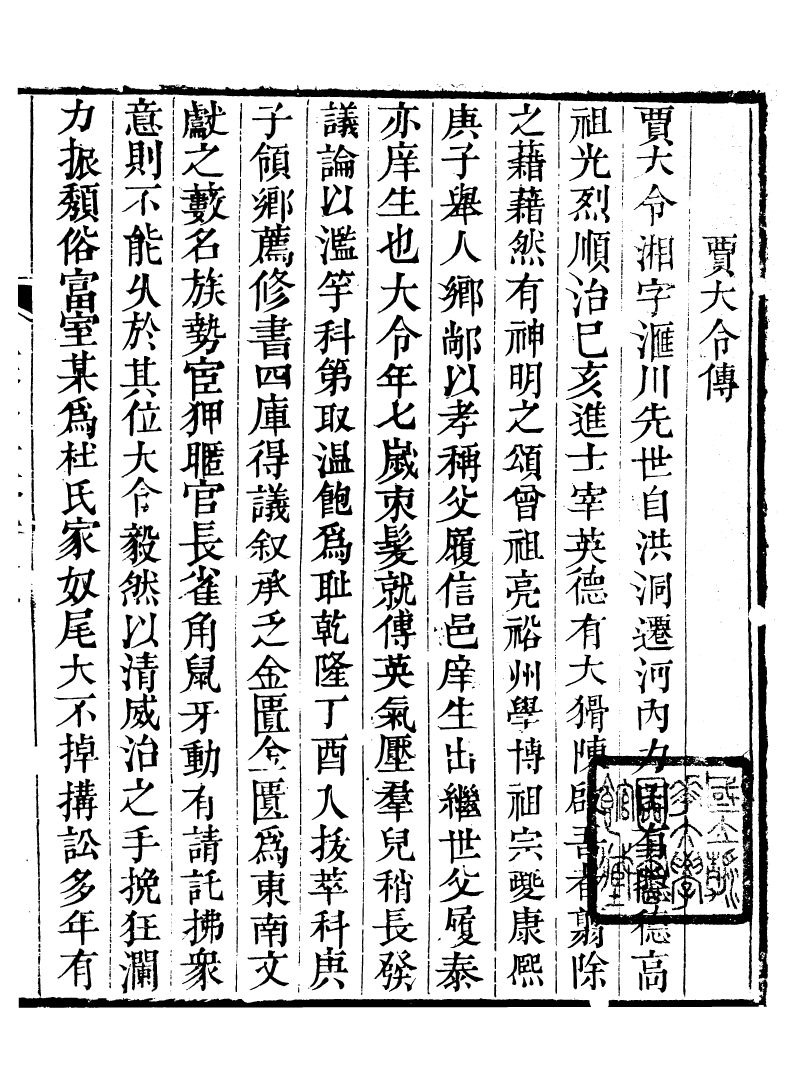 賈大令傳
賈大令湘字滙川先世自洪洞遷河內力田有隱德高
祖光烈順治已亥進士宰英德有大猾陳啟善者翦除
之藉藉然有神明之頌曾祖亮裕州學博祖宗夔康熙
庚子舉人鄉鄰以孝稱父履信邑庠生出繼世父履泰
亦庠生也大令年七歲束髮就傅英氣壓羣兒稍長發
議論以濫竽科第取溫飽爲耻乾隆丁酉入拔萃科庚
子領鄉薦修書四庫得議叙承乏金匱金匱爲東南文
獻之藪名族勢宦狎暱官長雀角鼠牙動有請託拂衆
意則不能乆於其位大令毅然以清威治之手挽狂瀾
力振頽俗富室某爲杜氏家奴尾大不掉搆訟多年有